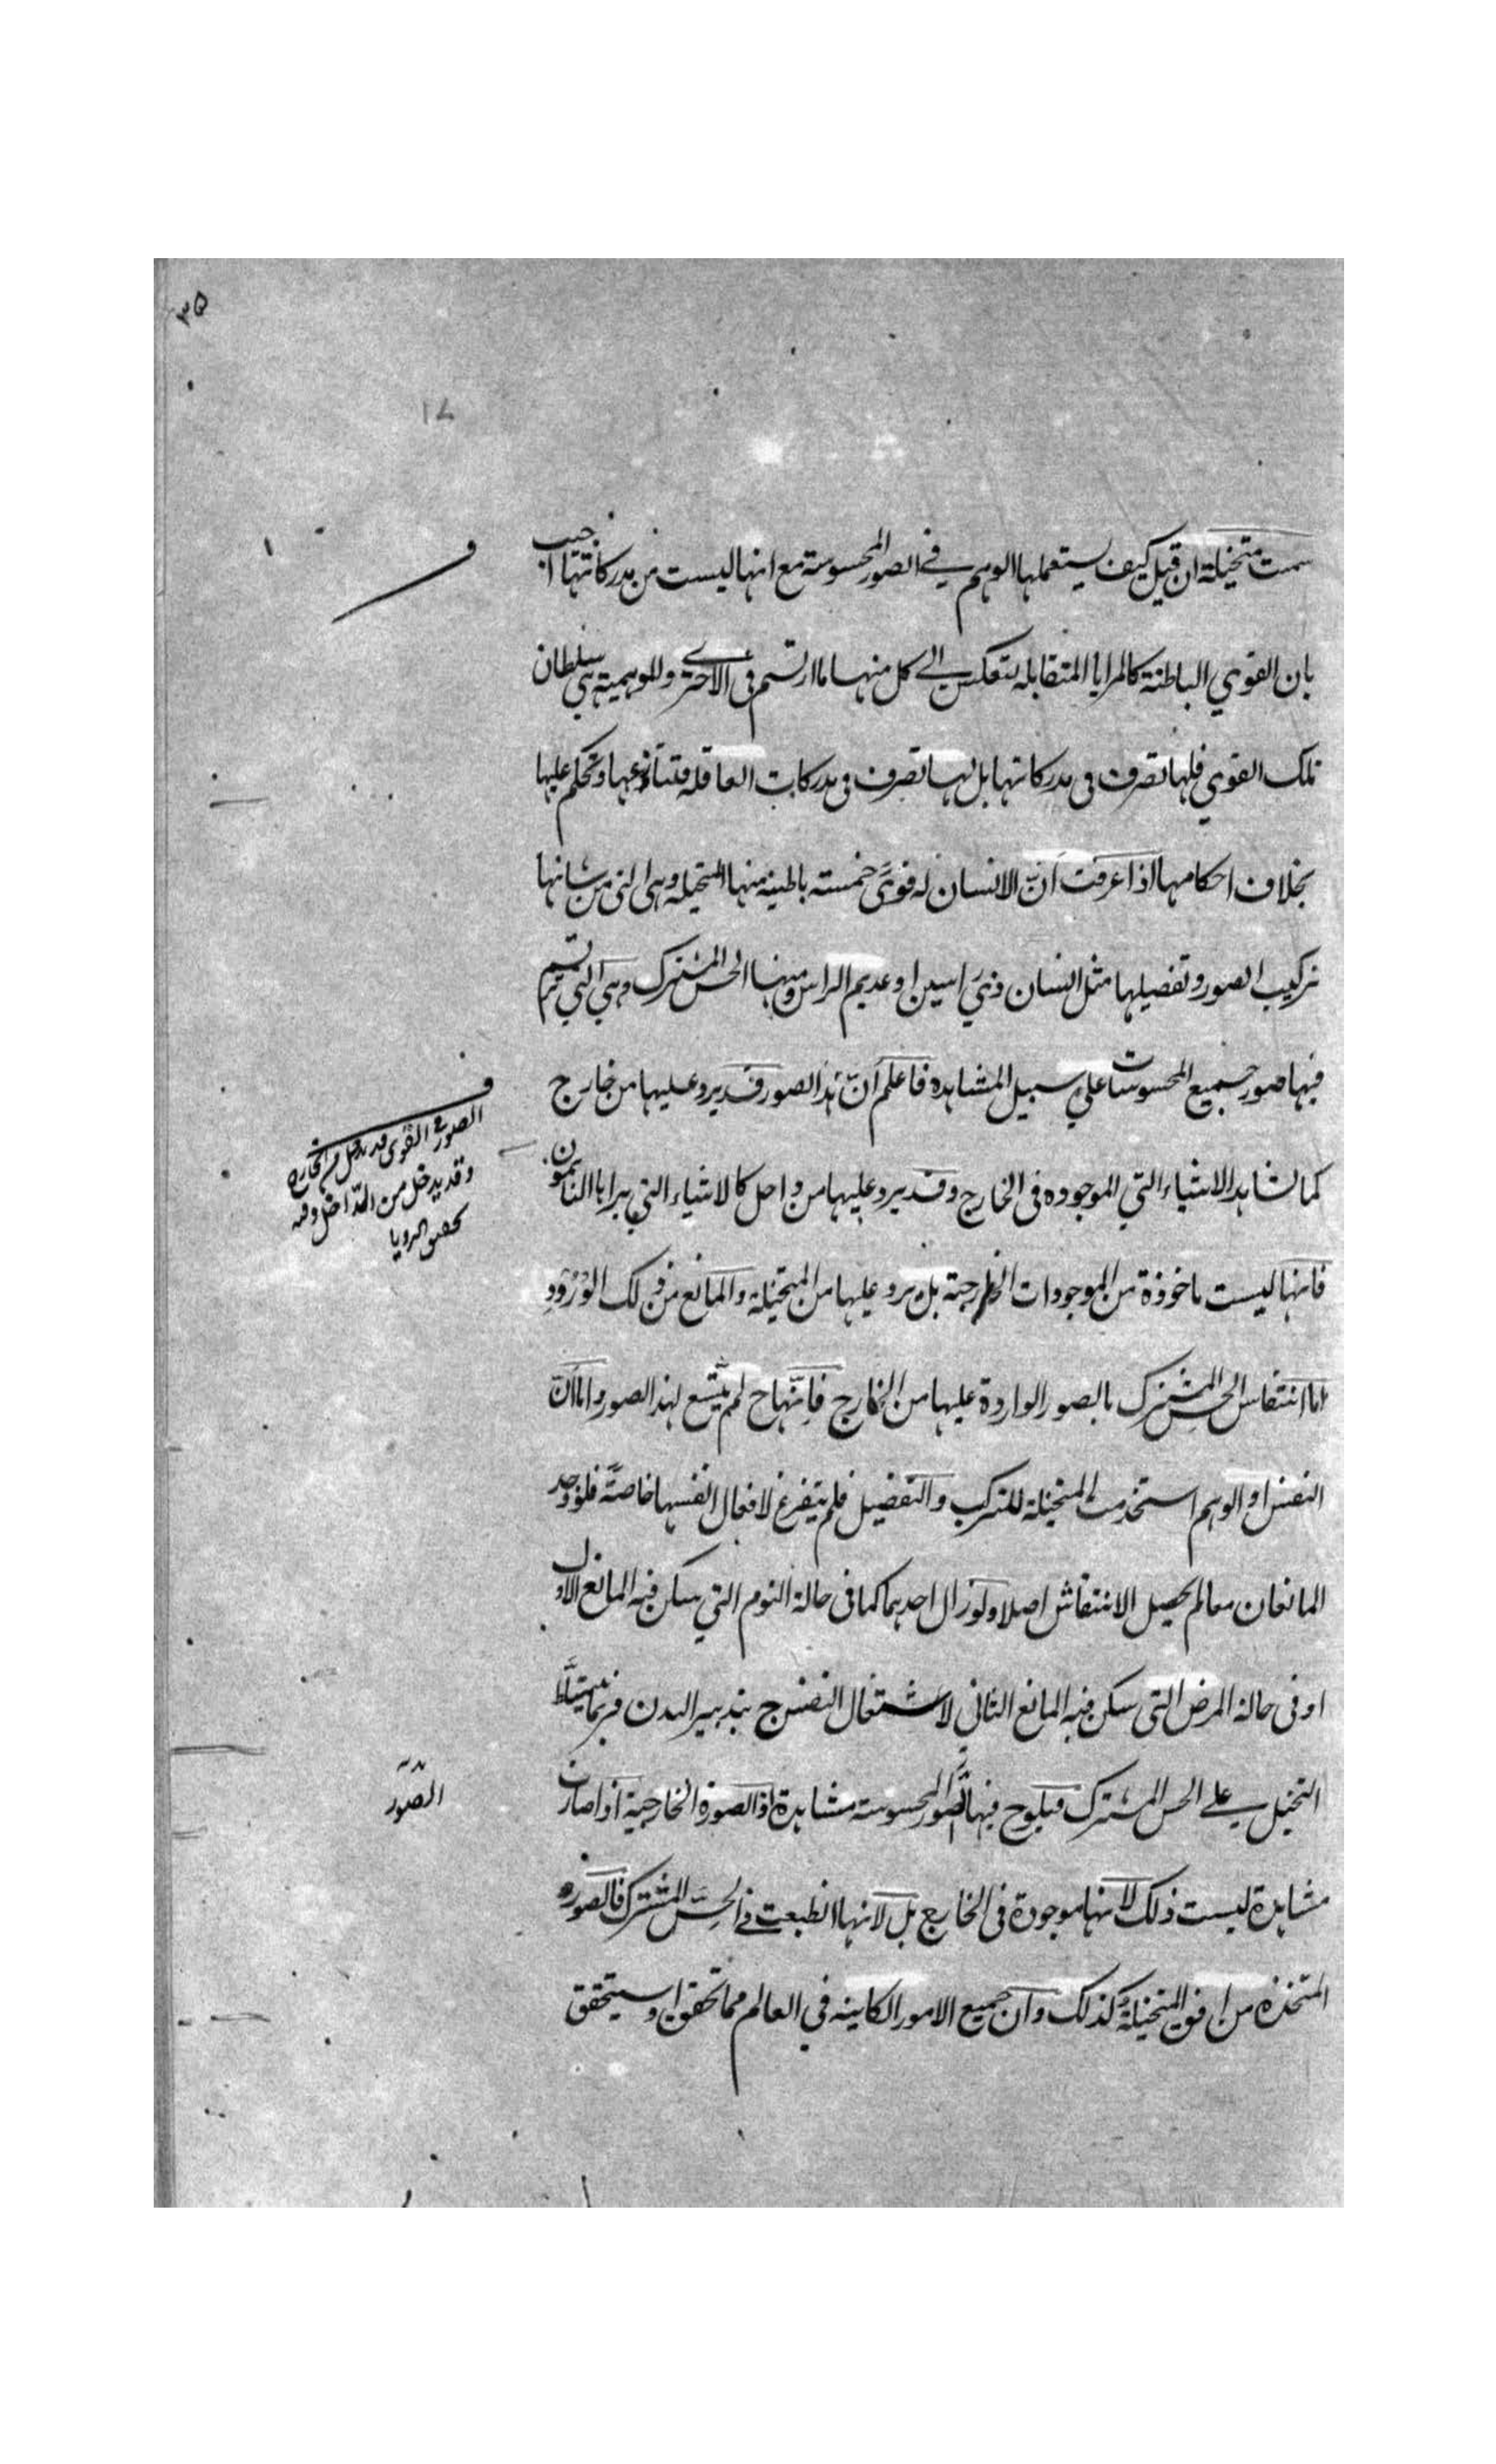 ٣٥
سمت متخيلة ان قيل كيف يستعملها الوهم في الصور المحسوسة مع انها ليست من مدركاتها اجيب
بان القوي الباطنة كالمرايا المتقابلة تنعكس الي كل منها ما ارتسم في الاخري وللوهمية هي سلطان
تلك القوي فلها تصرف في مدركاتها بل لها تصرف في مدركات العاقله فتنازعها وتحكم عليها
بخلاف احكامها اذا عرفت انّ الانسان له قوىً خمسته باطينه منها المتخيله وهي التي من شانها
تركيب الصور وتفصيلها مثل انسان ذي راسين او عديم الراس ومنها الحس المشترك وهي التي ترتسم
فيها صور جميع المحسوسات علي سبيل المشاهده فاعلم انّ هذا الصور قد يرد عليها من خارج
كما نشاهد الاشياء التي الموجوده في الخارج وقد يرد عليها من داخل كالاشياء التي يراها النائمون
فانها ليست ماخوذة من الموجودات الخارجية بل يرد عليها من المتخيلة والمانع من ذلك الوُرُود
اما انتقاس الحس المشترك بالصور الواردة عليها من الخارج فانّها ح لم يتّسع لهذا الصور واما انّ
النفس او الوهم استخدمت المتخيلة للتركيب والتفضيل فلم يتفرغ لافعال انفسها خاصتَّه فلو وجد
المانعان معا لم يحصيل الانتقاش اصلا ولو زال احديهما كما في حالة النوم التي يسكن فيه المانع الاول
او في حالة المرض التي يسكن فيه المانع الثاني لاشتغال النفس ح بتدبير البدن فربما يتسلّط
التخيل علي الحس المشترك فيلوح فيها الصور المحسوسته مشاهدة اذ الصورة الخارجية اذا صارت
مشاهدة ليست ذلك لانها موجودة في الخارج بل لانها انطبعت في الحسّ المشترك فالصوره
المتخذه من المتخيلة كذلك وانّ جميع الامور الكاينه في العالم مما تحقق او سيتحقق
الصور في القوى قد يدخل من الخارج
وقد يدخل من الدّاخل وفيه
تحقيق الرويا
الصّور